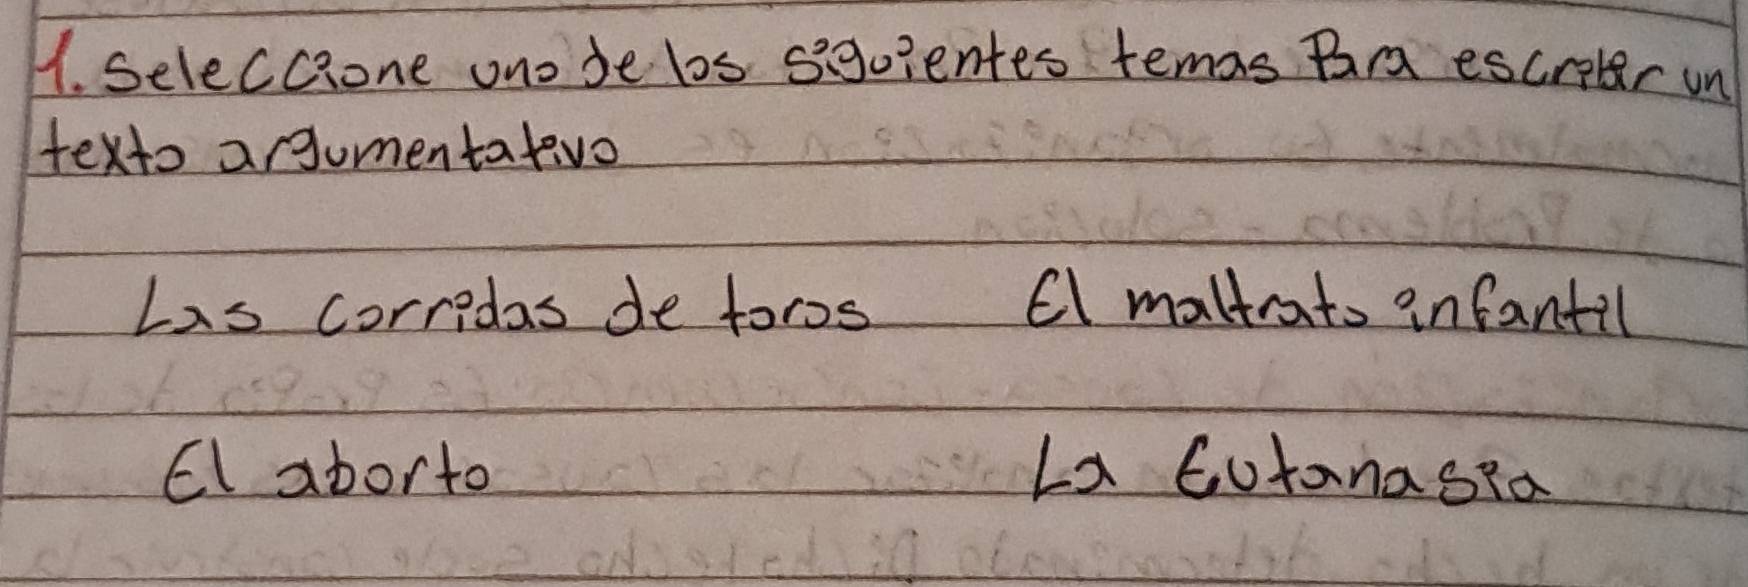 1. Seleccione uno de los siguientes temas Para escribir un
texto argumentativo
Las corridas de toros El maltrato infantil
El aborto La Eutanasia